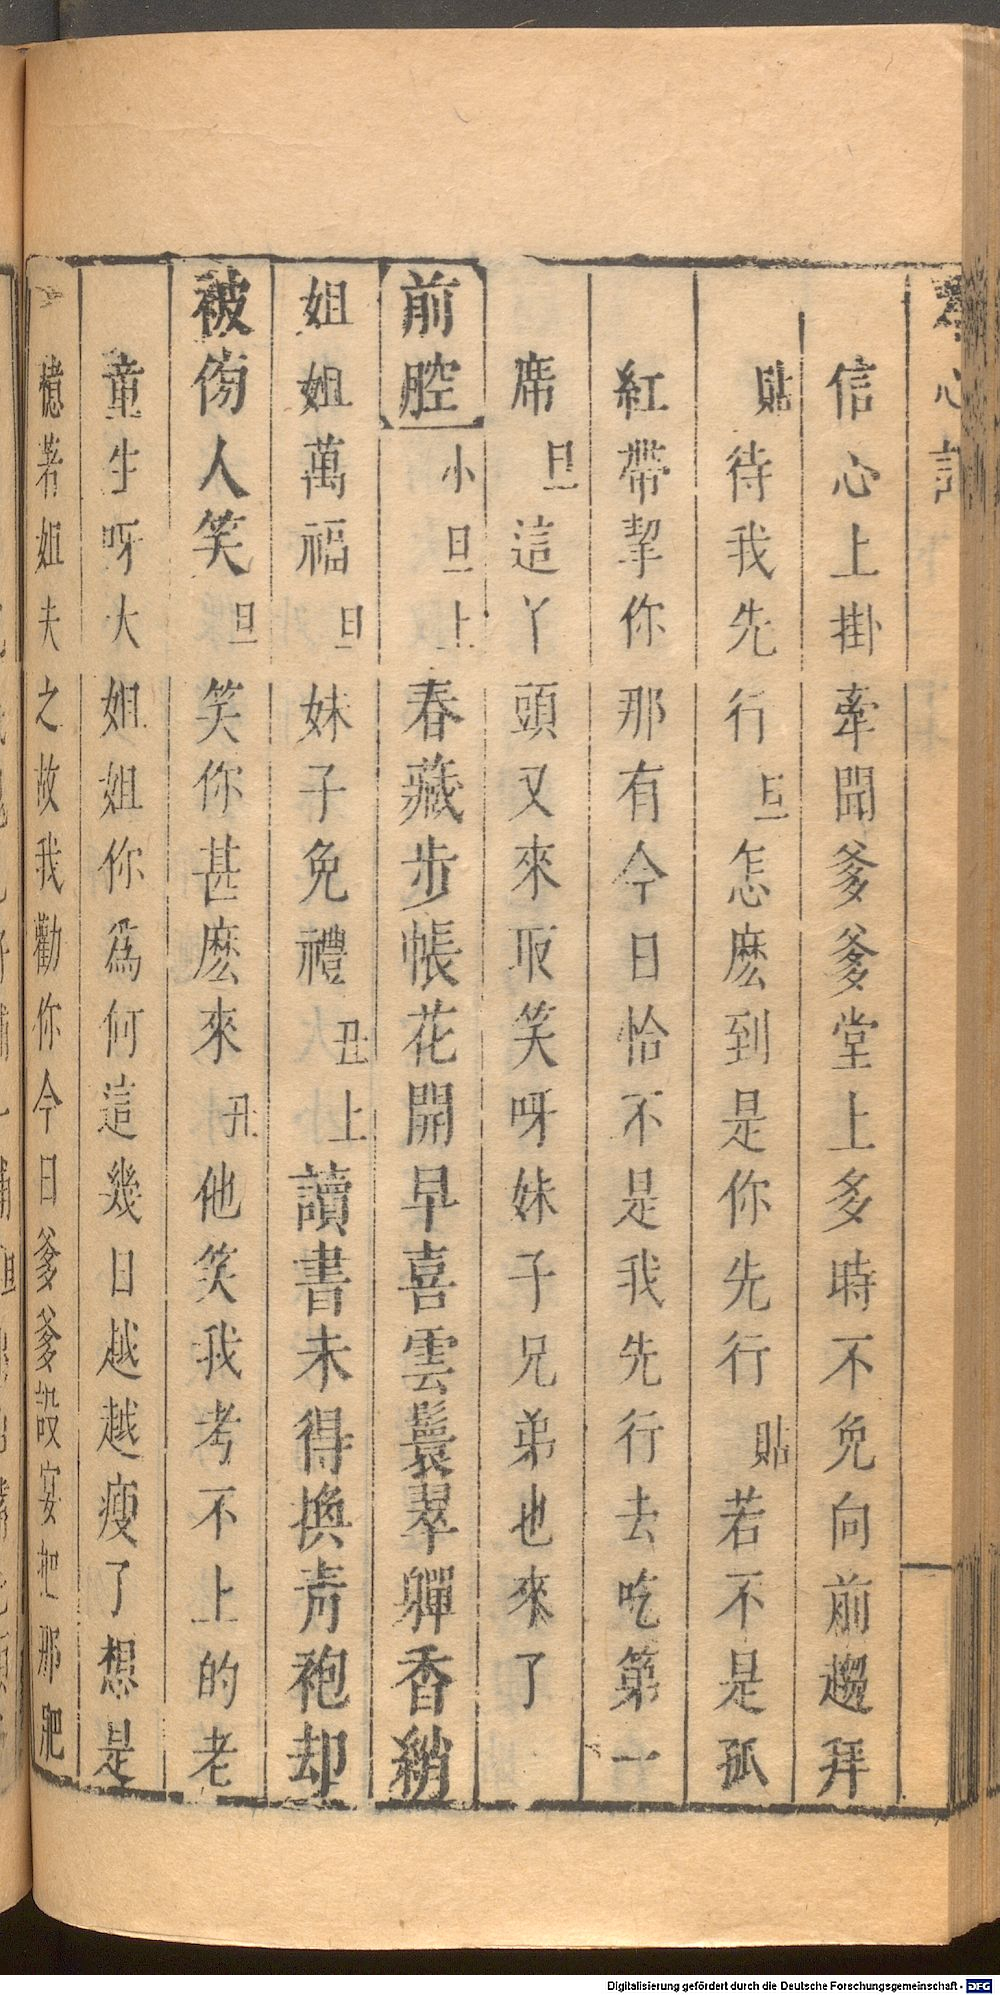 信心上掛牽聞爹爹堂上多時不免向前趨拜
貼待我先行旦怎麽到是你先行貼若不是孤
紅帶挈你那有今日恰不是我先行去吃第一
席旦這丫頭又來取笑呀妹子兄弟也來了
前腔小旦上春藏步帳花開早喜雲鬟翠軃香綃
姐姐萬福旦妹子免禮丑上讀書未得換靑袍却
被傍人笑旦笑你甚麽來丑他笑我考不上的老
童生呀大姐姐你爲何這幾日越越瘦了想是
憶着姐夫之故我勸你今日爹爹設宴把那肥
Digitalisierung gefördert durch die Deutsche Forschungsgemeinschaft - DFG